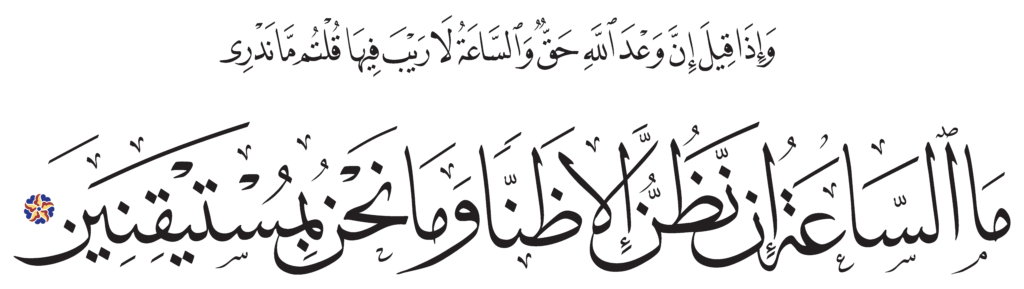 وَإِذَا قِيلَ إِنَّ وَعْدَ ٱللَّهِ حَقٌّ وَٱلسَّاعَةُ لَا رَيْبَ فِيهَا قُلْتُم مَّا نَدْرِى
مَا ٱلسَّاعَةُ إِن نَّظُنُّ إِلَّا ظَنًّا وَمَا نَحْنُ بِمُسْتَيْقِنِينَ